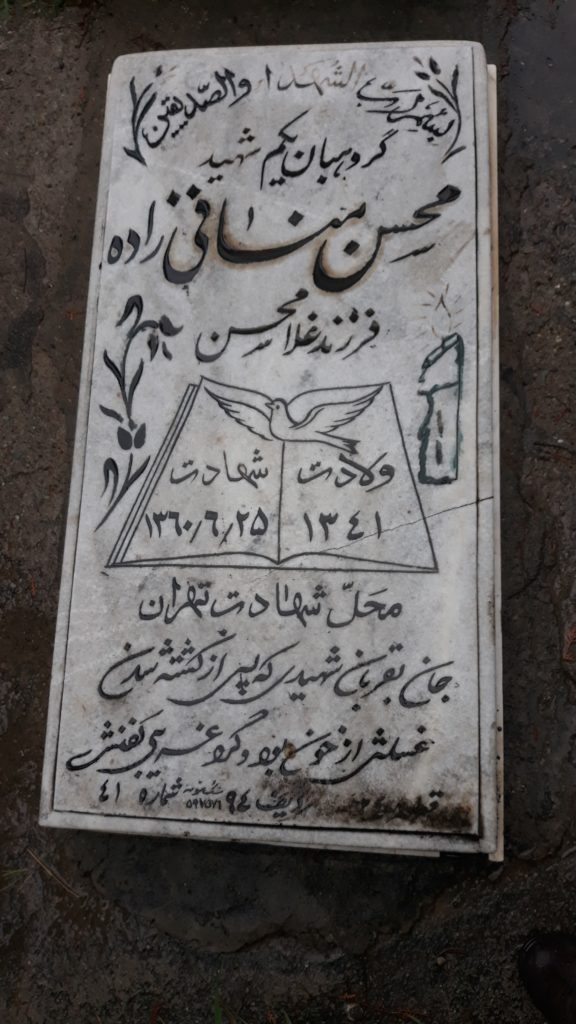 بسم رب الشهداء والصدیقین
گروهبان یکم شهید
محسن منافی زاده
فرزند غلامحسن
ولادت
۱۳۴۱
شهادت
۱۳۶۰/۶/۲۵
محل شهادت تهران
جان بقربان شهیدی که پس از کشته شدن
غسلش از خون بود و گرد غریبی کفنش
قطعه ۲۴ ردیف ۹۴ شماره ۴۱